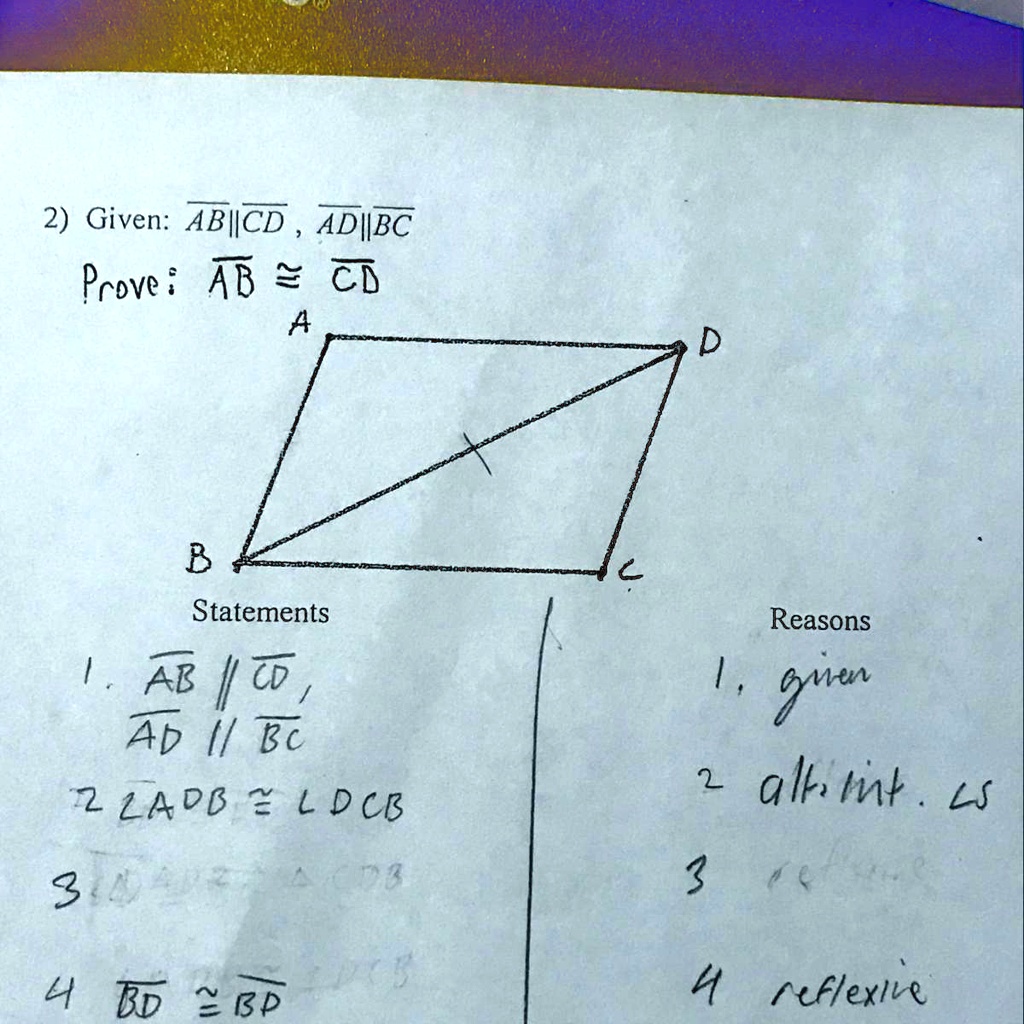 2) Given: AB||CD , AD||BC
Prove: AB ≅ CD
A
D
B
C
Statements
Reasons
1. AB // CD,
1. given
AD // BC
2 ∠ADB ≅ ∠DCB
2 alt. int. ∠s
3
3
4 BD ≅ BD
4 reflexive